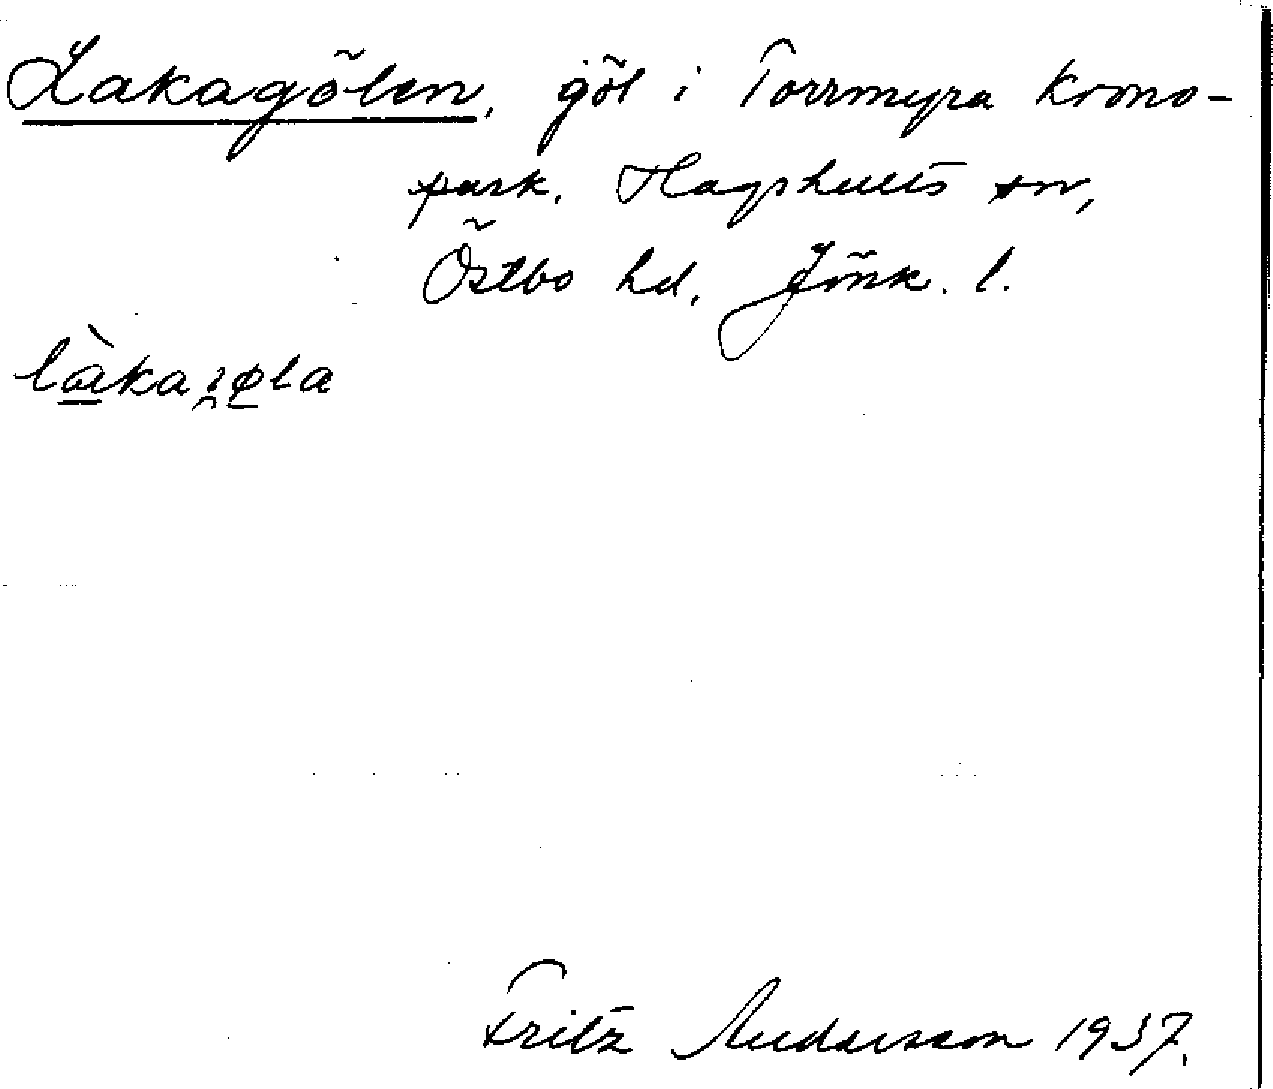 Lakagölen, göl i Torrmyra krono-
park. Hagshults sn,
Östbo hd, Jönk. l.
Fritz Andersson 1937.